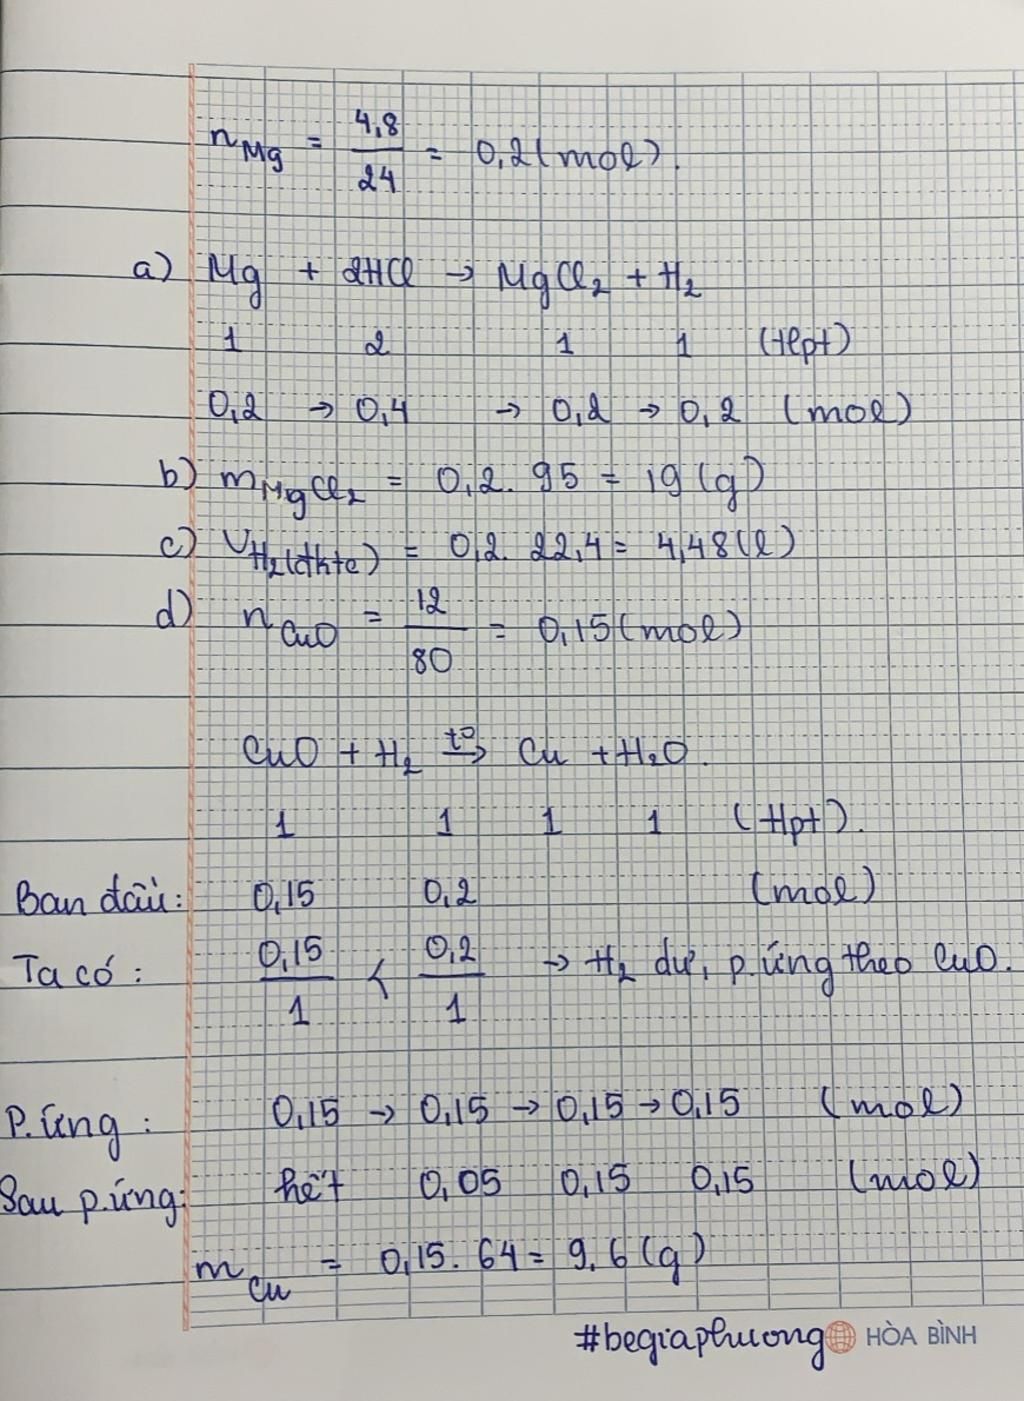 n_Mg = 4,8/24 = 0,2 (mol).
a) Mg + 2HCl → MgCl₂ + H₂
1 2 1 1 (tlpt)
0,2 → 0,4 → 0,2 → 0,2 (mol)
b) m_MgCl₂ = 0,2. 95 = 19 (g)
c) V_H₂(đktc) = 0,2. 22,4 = 4,48 (l)
d) n_CuO = 12/80 = 0,15 (mol)
CuO + H₂ →(t°) Cu + H₂O.
1 1 1 1 (tlpt).
Ban đầu: 0,15 0,2 (mol)
Ta có: 0,15/1 < 0,2/1 → H₂ dư, p.ứng theo CuO.
P.ứng: 0,15 → 0,15 → 0,15 → 0,15 (mol)
Sau p.ứng: hết 0,05 0,15 0,15 (mol)
m_Cu = 0,15. 64 = 9,6 (g)
#begiaphuong HÒA BÌNH